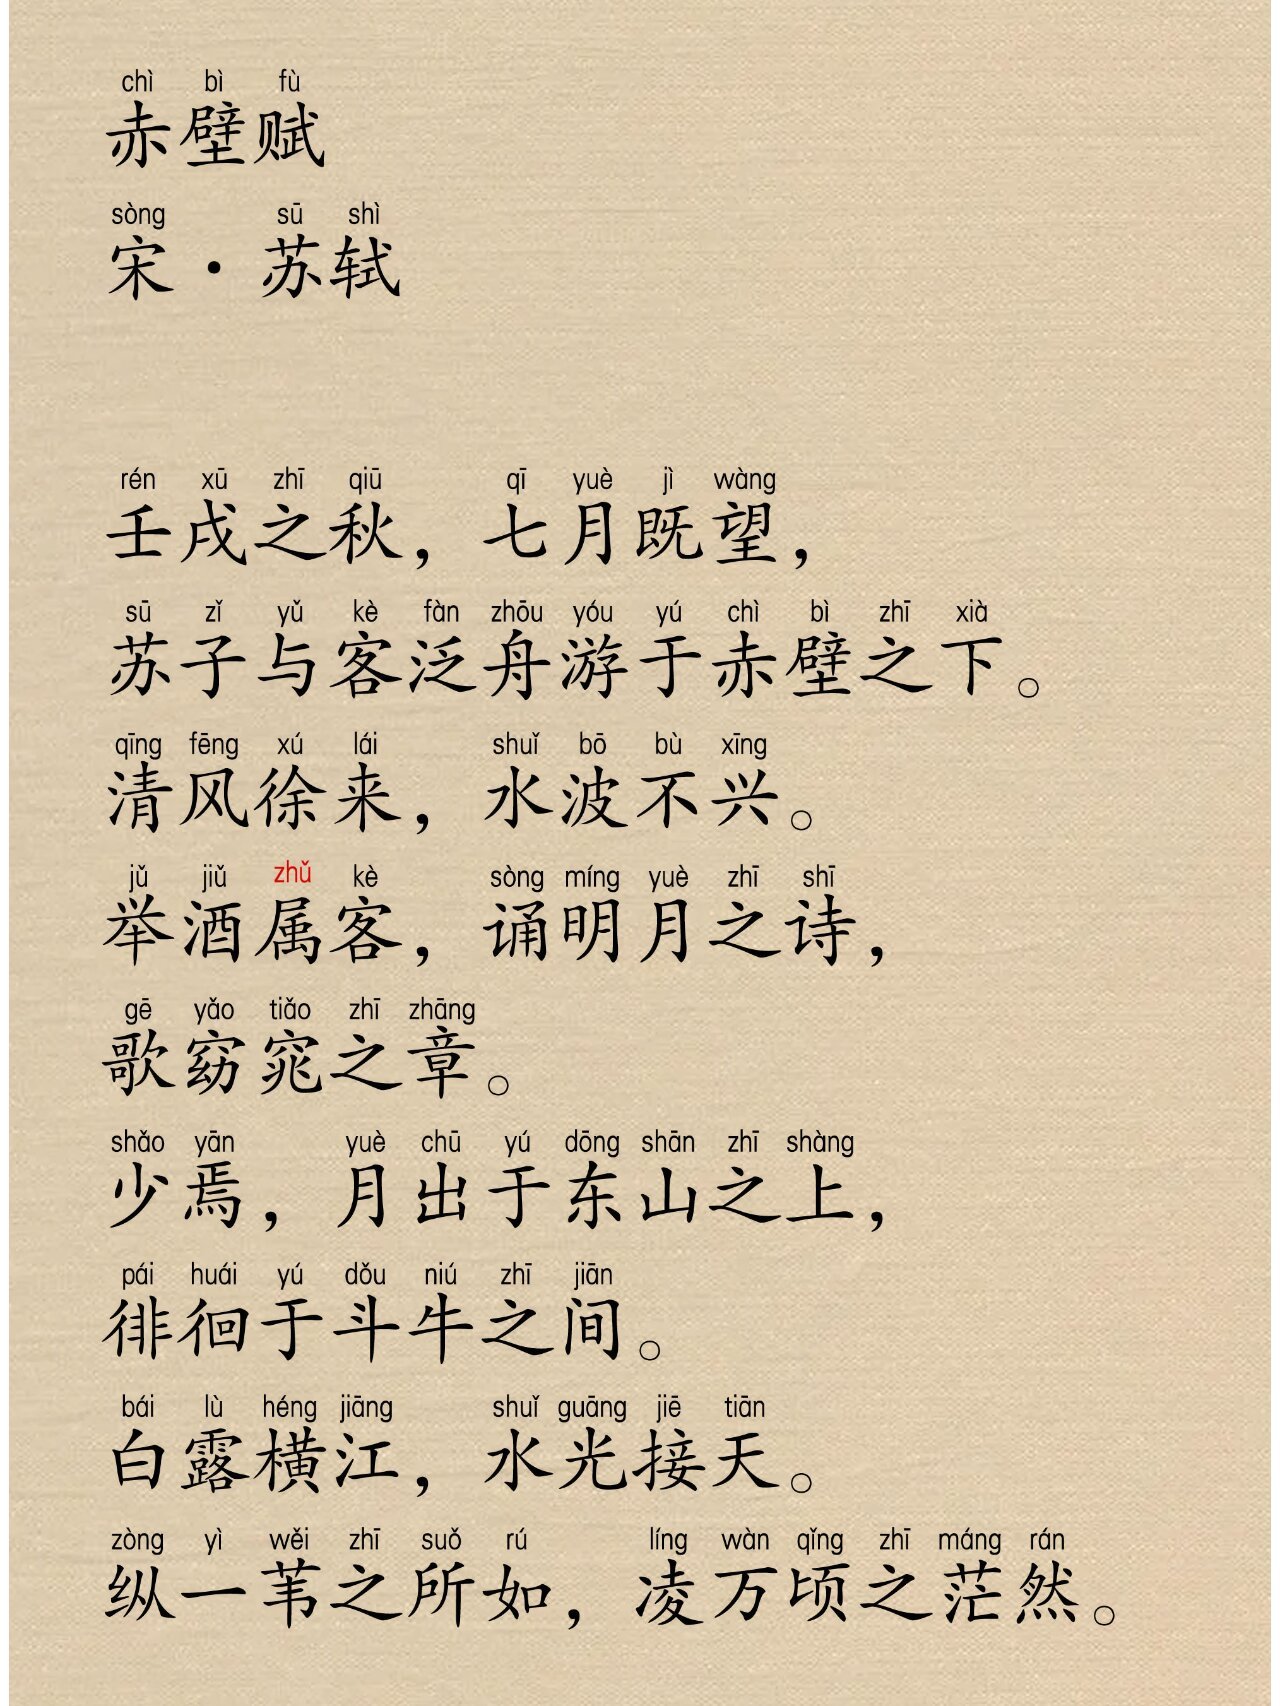 chì bì fù
赤壁赋
sòng sū shì
宋·苏轼
rén xū zhī qiū qī yuè jì wàng
壬戌之秋，七月既望，
sū zǐ yǔ kè fàn zhōu yóu yú chì bì zhī xià
苏子与客泛舟游于赤壁之下。
qīng fēng xú lái shuǐ bō bù xīng
清风徐来，水波不兴。
jǔ jiǔ zhǔ kè sòng míng yuè zhī shī
举酒属客，诵明月之诗，
gē yǎo tiǎo zhī zhāng
歌窈窕之章。
shǎo yān yuè chū yú dōng shān zhī shàng
少焉，月出于东山之上，
pái huái yú dǒu niú zhī jiān
徘徊于斗牛之间。
bái lù héng jiāng shuǐ guāng jiē tiān
白露横江，水光接天。
zòng yì wěi zhī suǒ rú líng wàn qǐng zhī máng rán
纵一苇之所如，凌万顷之茫然。